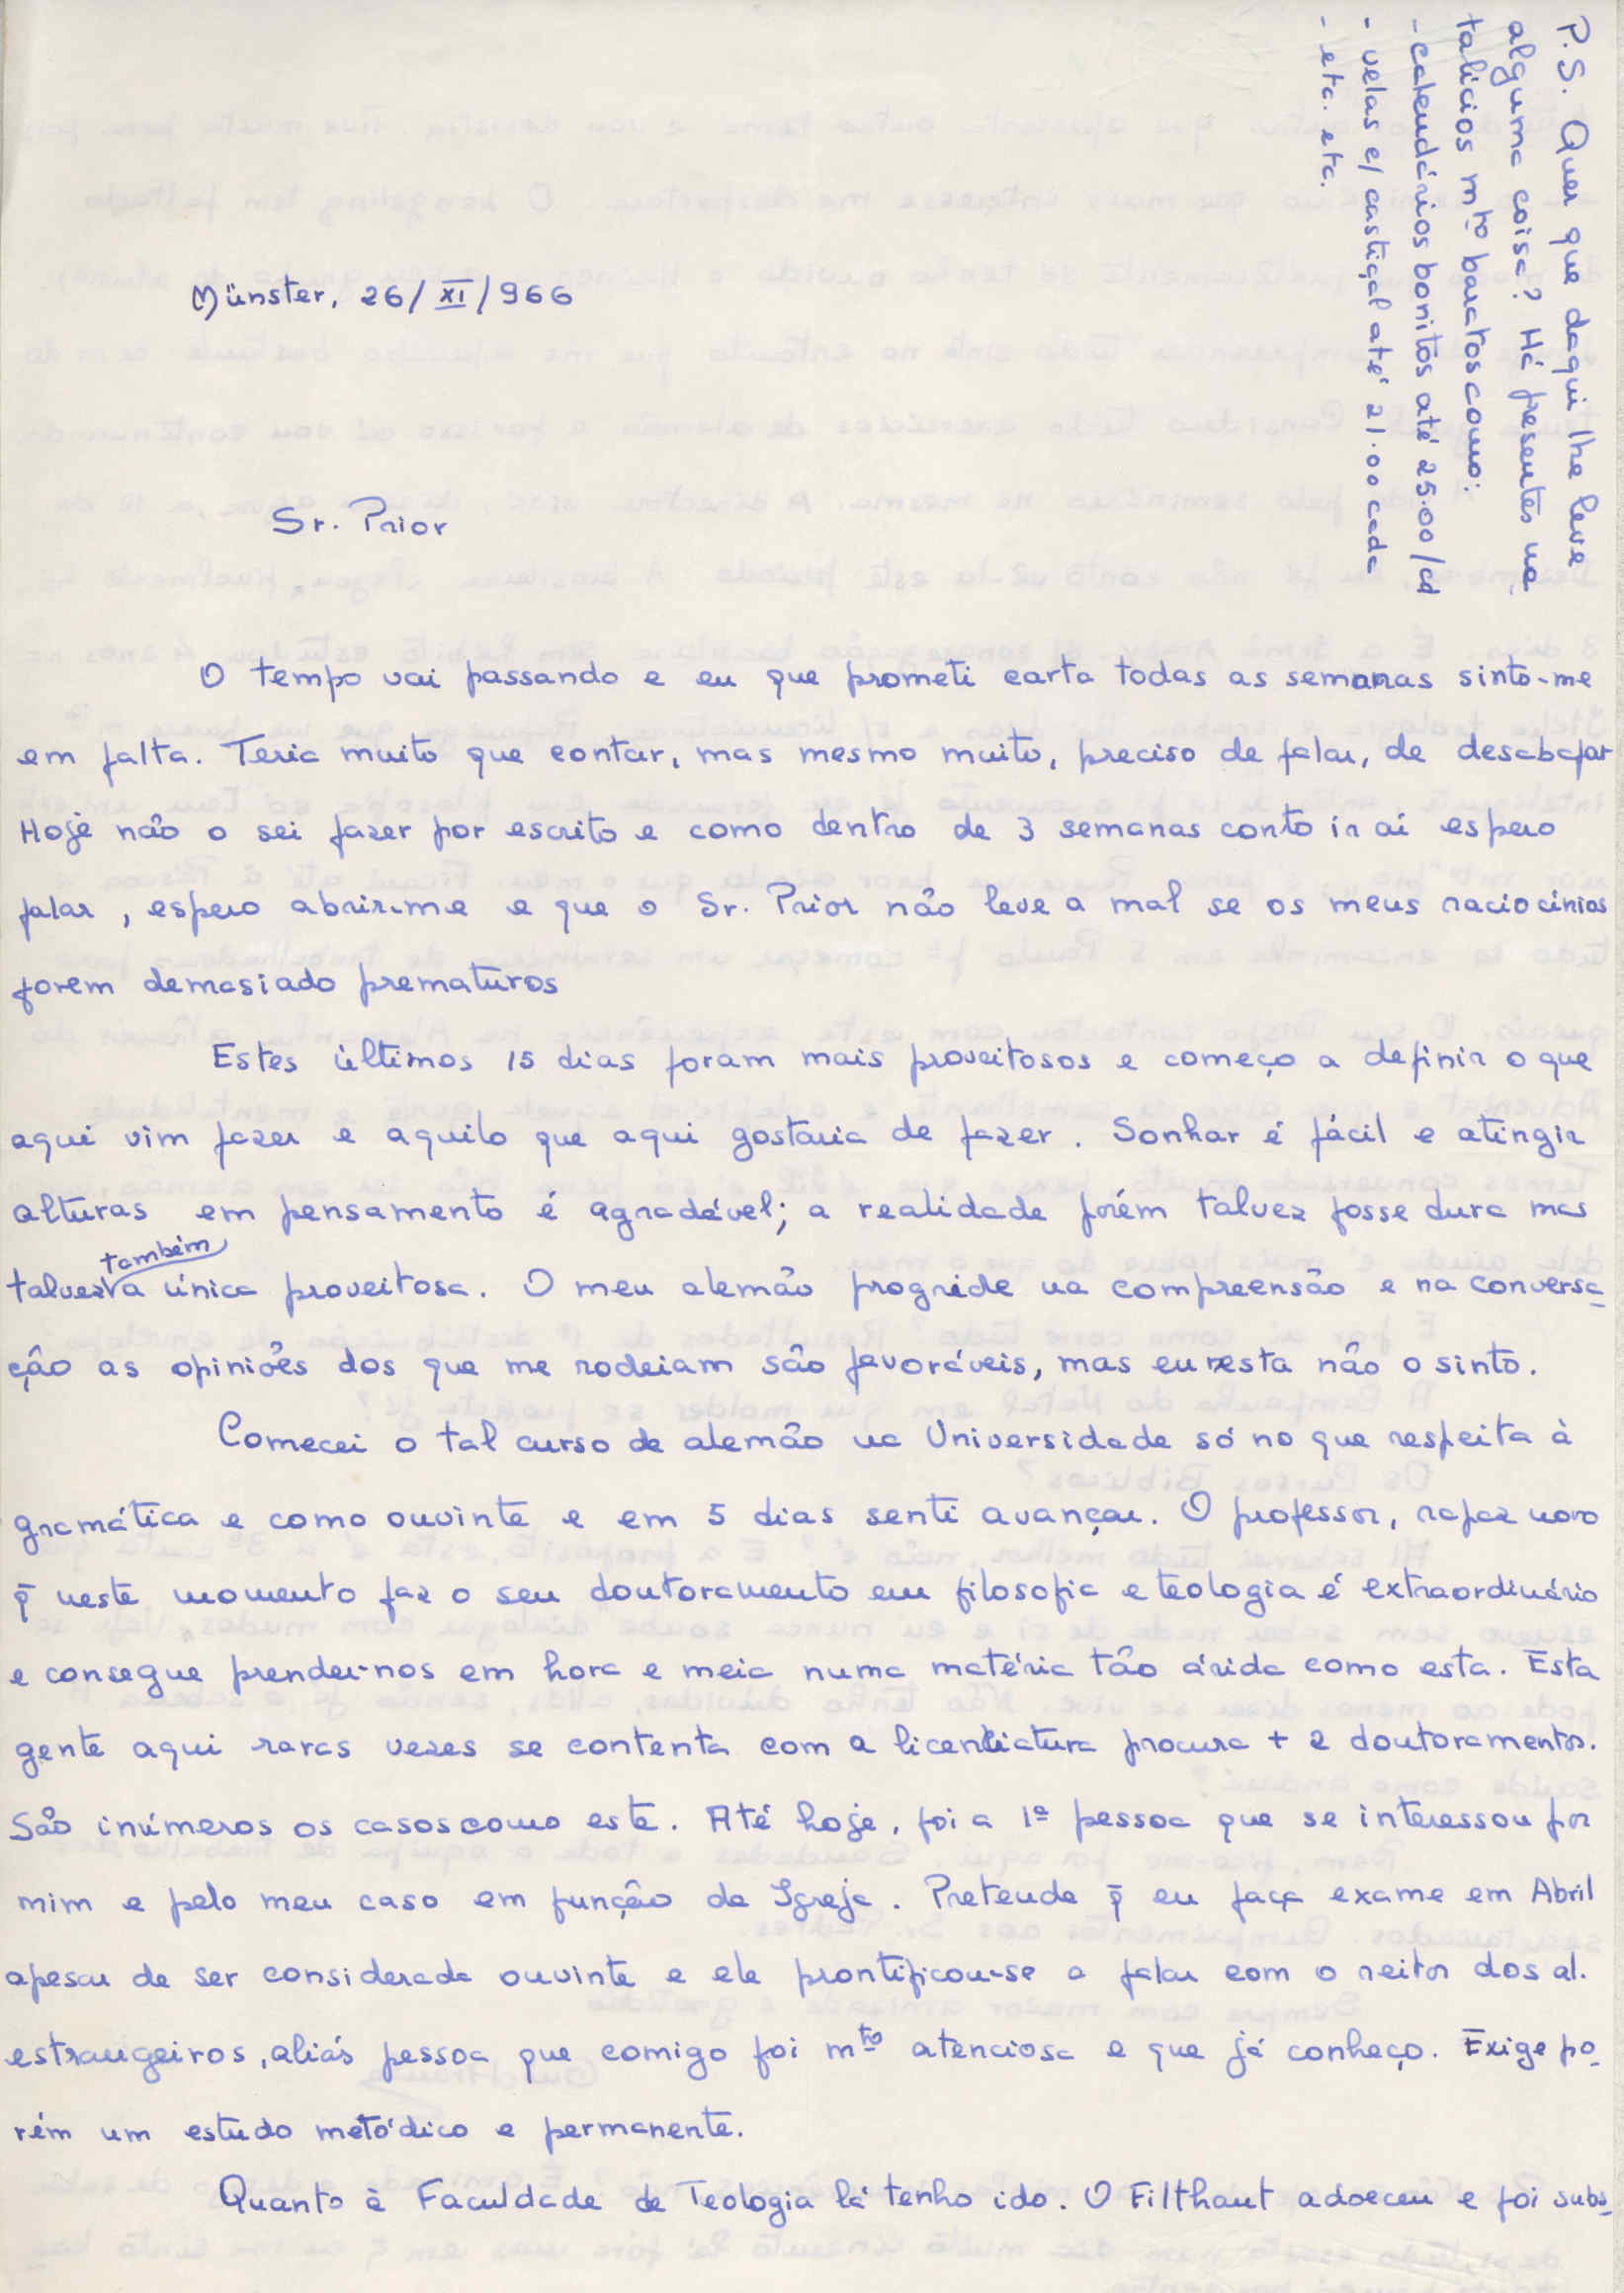 P.S. Quer que daqui lhe leve
alguma coisa? Há presentes na
talícios mto baratos como:
- calendários bonitos até 25.00/cd
- velas c/ castiçal até 21.00 cada
- etc. etc.
Münster, 26/XI/966
Sr. Prior
O tempo vai passando e eu que prometi carta todas as semanas sinto-me
em falta. Teria muito que contar, mas mesmo muito, preciso de falar, de desabafar
Hoje não o sei fazer por escrito e como dentro de 3 semanas conto ir aí espero
falar, espero abrir-me e que o Sr. Prior não leve a mal se os meus raciocínios
forem demasiado prematuros
Estes últimos 15 dias foram mais proveitosos e começo a definir o que
aqui vim fazer e aquilo que aqui gostaria de fazer. Sonhar é fácil e atingir
alturas em pensamento é agradável; a realidade porém talvez fosse dura mas
talvez também a única proveitosa. O meu alemão progride na compreensão e na conversa-
ção as opiniões dos que me rodeiam são favoráveis, mas eu nesta não o sinto.
Comecei o tal curso de alemão na Universidade só no que respeita à
gramática e como ouvinte e em 5 dias senti avançar. O professor, rapaz novo
q̄ neste momento faz o seu doutoramento em filosofia e teologia é extraordinário
e consegue prender-nos em hora e meia numa matéria tão árida como esta. Esta
gente aqui raras vezes se contenta com a licenciatura procura + 2 doutoramentos.
São inúmeros os casos como este. Até hoje, foi a 1ª pessoa que se interessou por
mim e pelo meu caso em função da Igreja. Pretende q̄ eu faça exame em Abril
apesar de ser considerada ouvinte e ele prontificou-se a falar com o reitor dos al.
estrangeiros, aliás pessoa que comigo foi mto atenciosa e que já conheço. Exige po-
rém um estudo metódico e permanente.
Quanto à Faculdade de Teologia lá tenho ido. O Filthaut adoeceu e foi subs-